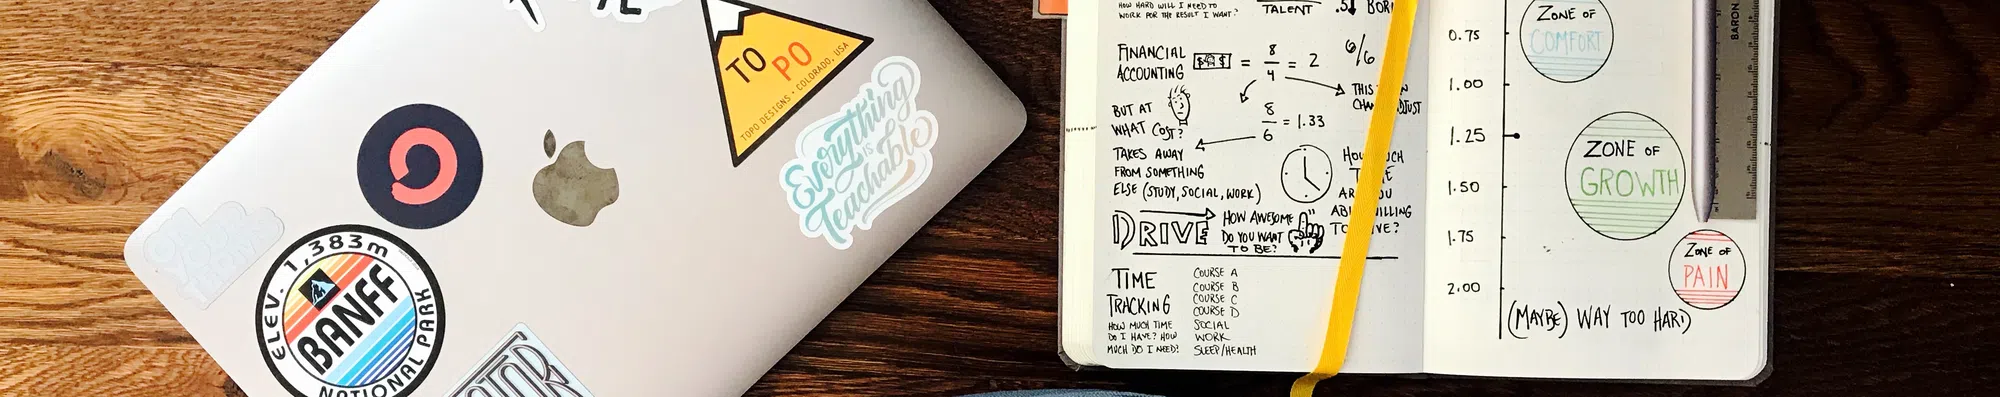 TOPO
TOPO DESIGNS • COLORADO, USA
Everything
is
Teachable
ELEV. 1,383m
BANFF
NATIONAL PARK
HOW HARD WILL I NEED TO
WORK FOR THE RESULT I WANT?
TALENT
FINANCIAL
ACCOUNTING
= 8/4 = 2
6/6
BUT AT
WHAT COST?
8/6 = 1.33
THIS
TAKES AWAY
FROM SOMETHING
ELSE (STUDY, SOCIAL, WORK)
DRIVE
HOW AWESOME
DO YOU WANT
TO BE?
TIME
TRACKING
HOW MUCH TIME
DO I HAVE? HOW
MUCH DO I NEED?
COURSE A
COURSE B
COURSE C
COURSE D
SOCIAL
WORK
SLEEP/HEALTH
0.75
1.00
1.25
1.50
1.75
2.00
ZONE OF
COMFORT
ZONE OF
GROWTH
ZONE OF
PAIN
(MAYBE) WAY TOO HARD
BARON